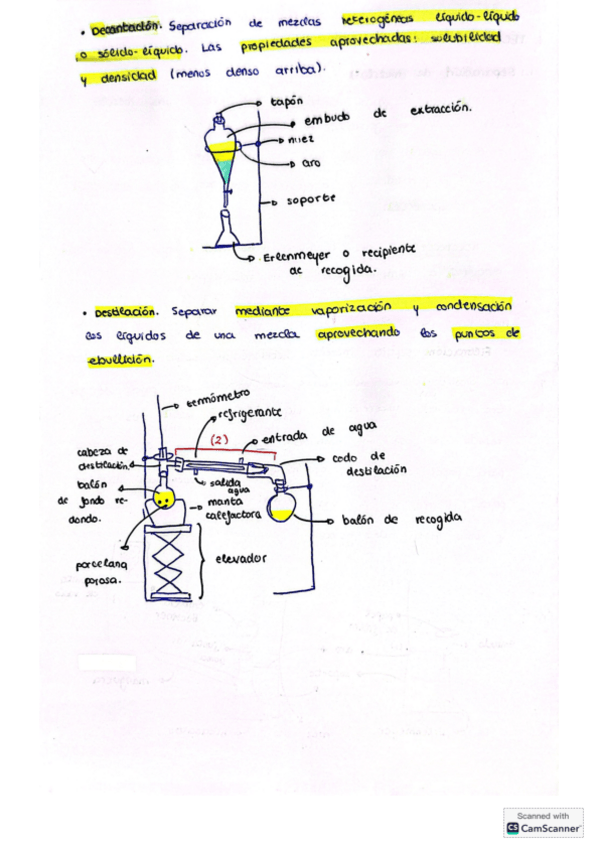 • Decantación. Separación de mezclas heterogéneas líquido-líquido
o sólido-líquido. Las propiedades aprovechadas: solubilidad
y densidad (menos denso arriba).
tapón
embudo de extracción.
nuez
aro
soporte
Erlenmeyer o recipiente
de recogida.
• Destilación. Separar mediante vaporización y condensación
los líquidos de una mezcla aprovechando los puntos de
ebullición.
termómetro
refrigerante
(2)
entrada de agua
cabeza de
destilación
codo de
destilación
salida
agua
balón
de fondo re-
dondo.
manta
calefactora
balón de recogida
porcelana
porosa.
elevador
Scanned with
CS CamScanner